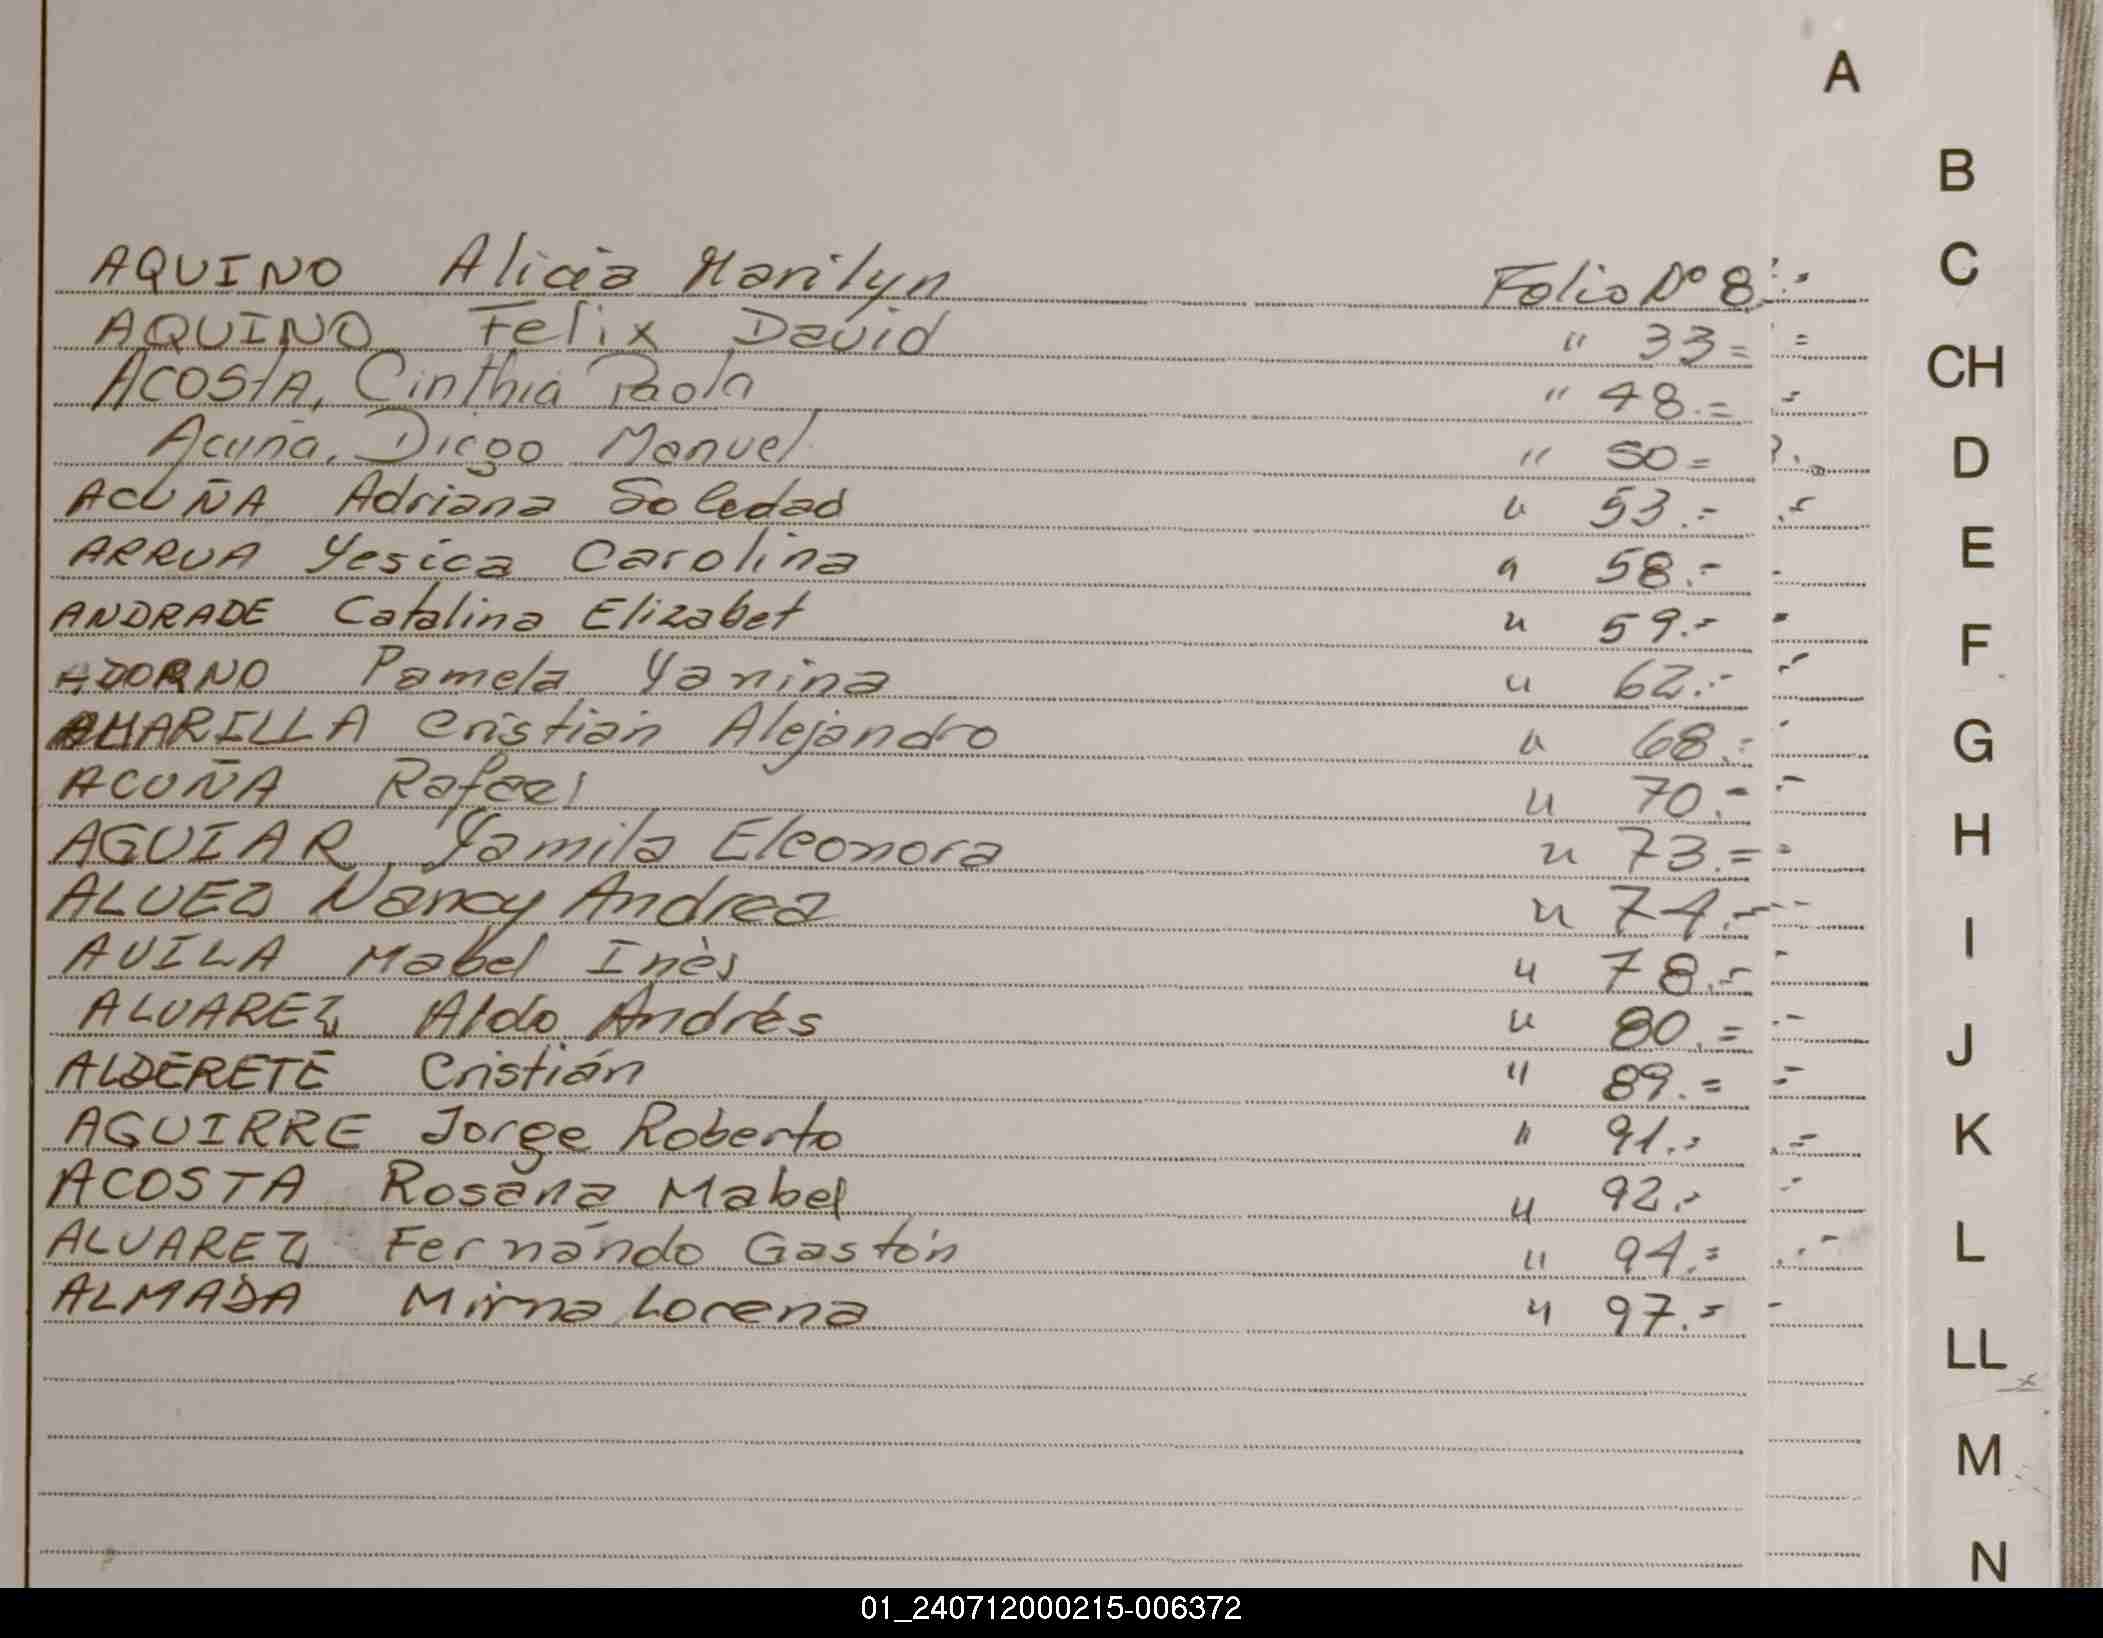 A
B
C
CH
D
E
F
G
H
I
J
K
L
LL
M
N
AQUINO Alicia Marilyn Folio Nº 8.-
AQUINO Felix David " 33=
ACOSTA, Cinthia Paola " 48.=
Acuña, Diego Manuel " 50=
ACUÑA Adriana Soledad " 53.-
ARRUA Yesica Carolina " 58.-
ANDRADE Catalina Elizabet " 59.-
ADORNO Pamela Yanina " 62.-
AMARILLA Cristian Alejandro " 68.-
ACUÑA Rafael " 70.-
AGUIAR, Yamila Eleonora " 73.=
ALVEZ Nancy Andrea " 74.-
AVILA Mabel Inès " 78.-
ALVAREZ Aldo Andrés " 80.=
ALDERETE Cristián " 89.=
AGUIRRE Jorge Roberto " 91.-
ACOSTA Rosana Mabel " 92.-
ALVAREZ Fernándo Gastón " 94.=
ALMADA Mirna Lorena " 97.-
01_240712000215-006372